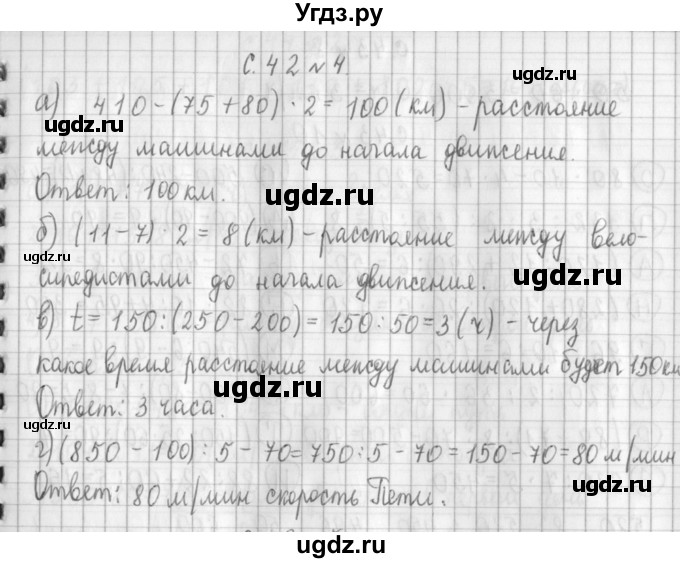 Угдз.ру
с. 42 № 4
а) 410-(75+80)·2=100(км)-расстояние
между машинами до начала движения.
Ответ: 100 км.
б) (11-7)·2=8(км)-расстояние между вело-
сипедистами до начала движения.
в) t=150:(250-200)=150:50=3(ч)-через
какое время расстояние между машинами будет 150 км
Ответ: 3 часа.
г) (850-100):5-70=750:5-70=150-70=80 м/мин
Ответ: 80 м/мин скорость Пети.
ugdz.ru
ugdz.ru
ugdz.ru
ugdz.ru
ugdz.ru
ugdz.ru
ugdz.ru
ugdz.ru
ugdz.ru
ugdz.ru